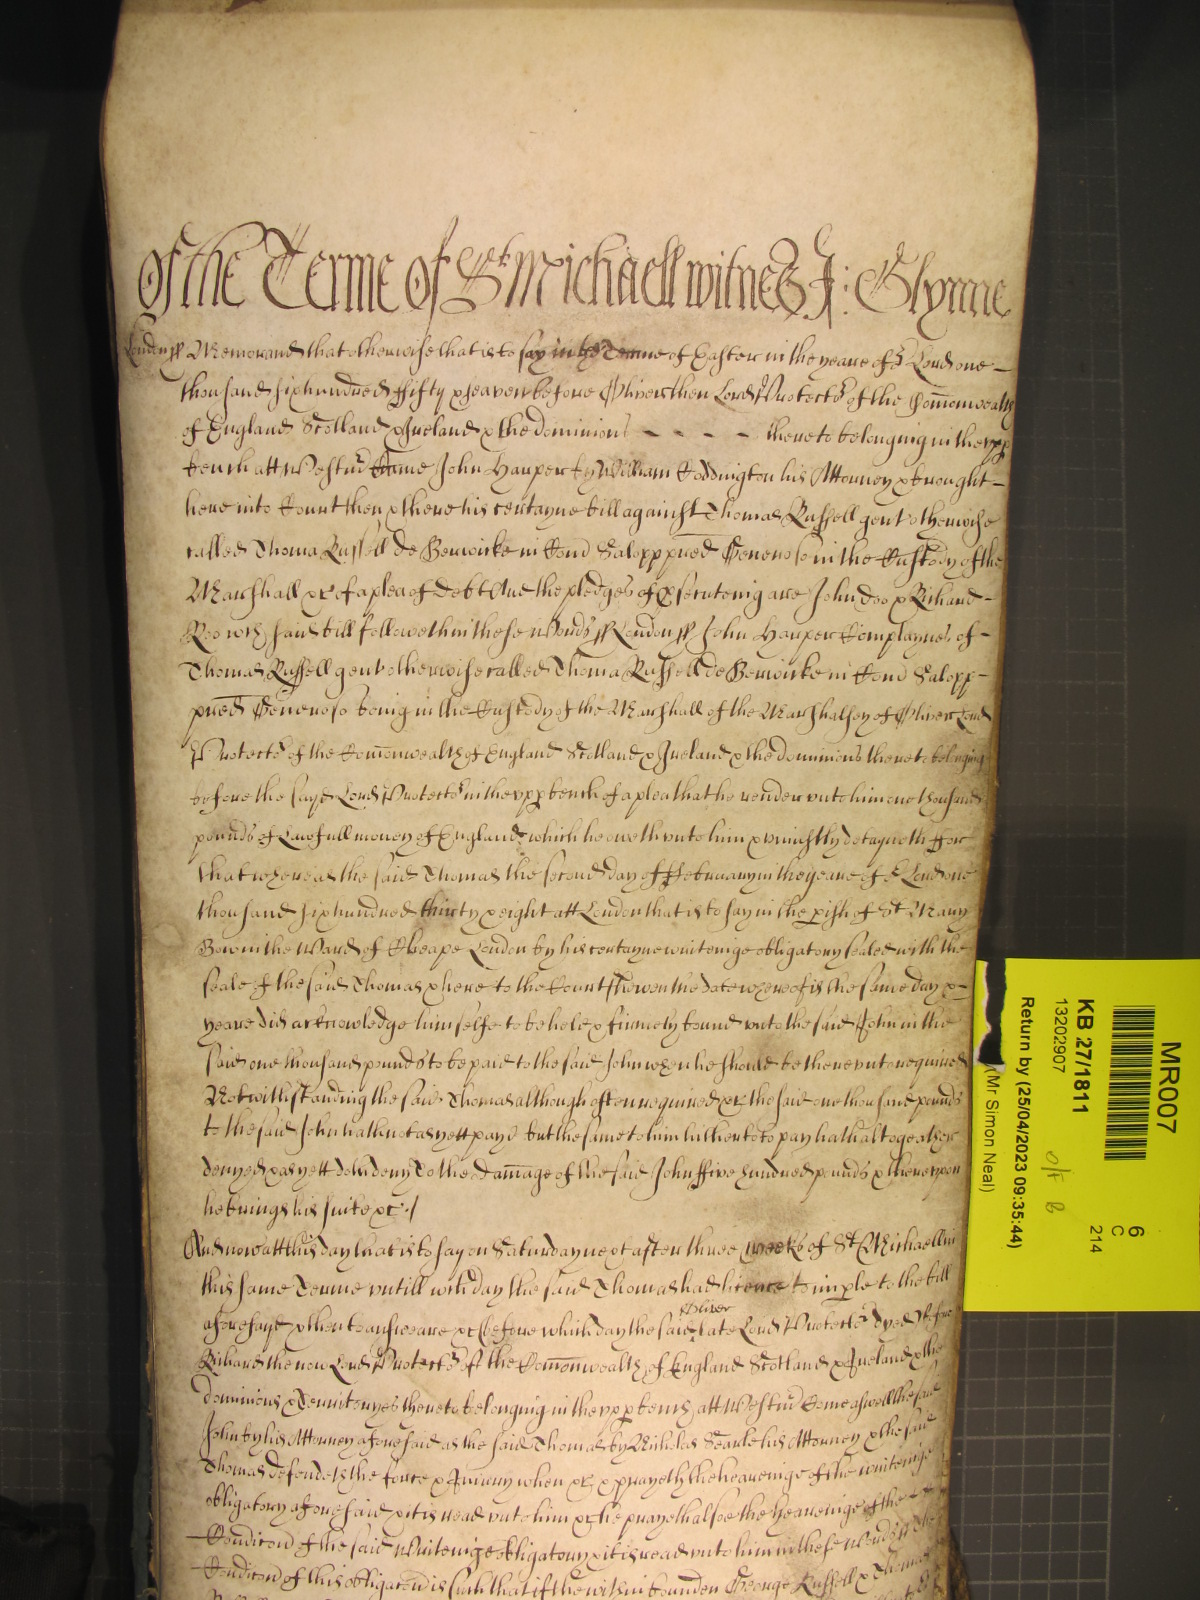 Of the Terme of St Michaell witnes J: Glynne
London ss Memorand that otherwise that is to say in the Terme of Easter in the yeare of or Lord one
thousand six hundred fifty & seaven before Oliver then Lord Protector of the Comonwealth
of England Scotland & Ireland & the dominions - - - - thereto belonging in the upp
bench att Westmr Came John Harper by William Coddington his Attorney & brought
here into Court then & there his certayne bill against Thomas Russell gent otherwise
called Thoma Russell de Berwicke in Com Salopp pred Generoso in the Custody of the
Marshall &c of a plea of debt And the pledges of prsecuteing are John doo & Richard
Roo wch said bill followeth in these words ss London ss John Harper Complaynes of
Thomas Russell gent otherwise called Thoma Russell de Berwicke in Com Salopp
pred Generoso being in the Custody of the Marshall of the Marshalsey of Oliver Lord
Protector of the Comonwealth of England Scotland & Ireland & the dominions thereto belonging
before the sayd Lord Protector in the upp bench of a plea that he render unto him one thousand
pounds of Lawfull money of England which he oweth unto him & uniustly detayneth ffor
that whereas the said Thomas the second day of ffebruary in the yeare of or Lord one
thousand six hundred thirty & eight att London that is to say in the pish of St Mary
Bow in the Ward of Cheape London by his certayne writeinge obligatory sealed with the
seale of the said Thomas & here to the Court shewen the date whereof is the same day &
yeare did acknowledge himselfe to be held & firmely bound unto the said John in the
said one thousand pounds to be paid to the said John when he should be thereunto required
Notwithstanding the said Thomas although often required &c the said one thousand pounds
to the said John hath not as yett payd but the same to him hitherto to pay hath altogeather
denyed & as yett doth deny To the damage of the said John ffive hundred pounds & thereupon
he brings his suite &c
And now att this day that is to say on Saturday next after three weeks of St Michaell in
this same Terme untill wch day the said Thomas had licence to imple to the bill
aforesayd & then to answeare &c before which day the said Oliver late Lord Protector dyed Before
Richard the now Lord Protector of the Comonwealth of England Scotland & Ireland & the
dominions & Territoryes thereto belonging in the upp bench att Westmr Come aswell the said
John by his Attorney aforesaid as the said Thomas by Nicholas Searle his Attorney & the said
Thomas defendeth the force & Iniury when &c & prayeth the heareinge of the writeinge
obligatory aforesaid & it is read unto him &c he prayeth alsoe the heareinge of the
Condicon of the said writeinge obligatory & it is read unto him in these words ss The
Condicon of this obligacon is such that if the within bounden George Russell & Thomas
MR007
KB 27/1811
13202907
Return by (25/04/2023 09:35:44)
(Mr Simon Neal)
6
C
214